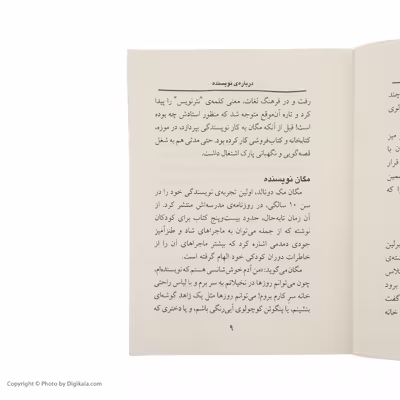 درباره‌ی نویسنده
رفت و در فرهنگ لغات، معنی کلمه‌ی "نثرنویس" را پیدا
کرد و تازه آن‌موقع متوجه شد که منظور استادش چه بوده
است! قبل از آنکه مگان به کار نویسندگی بپردازد، در موزه،
کتابخانه و کتاب‌فروشی کار کرده بود. حتی مدتی هم به شغل
قصه‌گویی و نگهبانی پارک اشتغال داشت.
مگان نویسنده
مگان مک دونالد، اولین تجربه‌ی نویسندگی خود را در
سن ۱۰ سالگی، در روزنامه‌ی مدرسه‌اش منتشر کرد. از
آن زمان تابه‌حال، حدود بیست‌وپنج کتاب برای کودکان
نوشته که از جمله می‌توان به ماجراهای شاد و طنزآمیز
جودی دمدمی اشاره کرد که بیشتر ماجراهای آن را از
خاطرات دوران کودکی خود الهام گرفته است.
مگان می‌گوید: «من آدم خوش شانسی هستم که نویسنده‌ام،
چون می‌توانم روزها در تخیلاتم به سر برم و با لباس راحتی
خانه سر کارم بروم! می‌توانم روزها مثل یک زاهد گوشه‌ای
بنشینم، یا پنگوئن کوچولوی آبی‌رنگی باشم، و یا دختری که
۹
چند
میز
ن با
قرار
همین
ا که
برلین
کلاس
برود
گفت
خانه
Copyright © Photo by Digikala.com